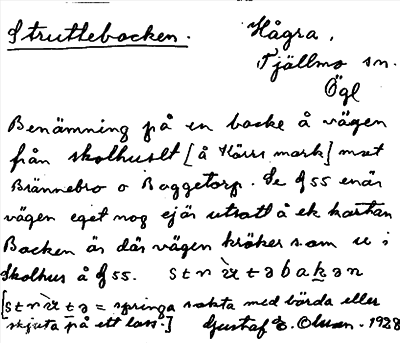 Struttebacken. Hågra,
Tjällmo sn.
Ögl
Benämning på en backe å vägen
från skolhuset [å Kärrs mark] mot
Brännebro o Baggetorp. Se G55 enär
vägen eget nog ejär utsatt å ek kartan
Backen är där vägen kröker som u i
Skolhus å G55.
= springa sakta med börda eller
skjuta på ett lass.] Gustaf E. Olsson. 1928